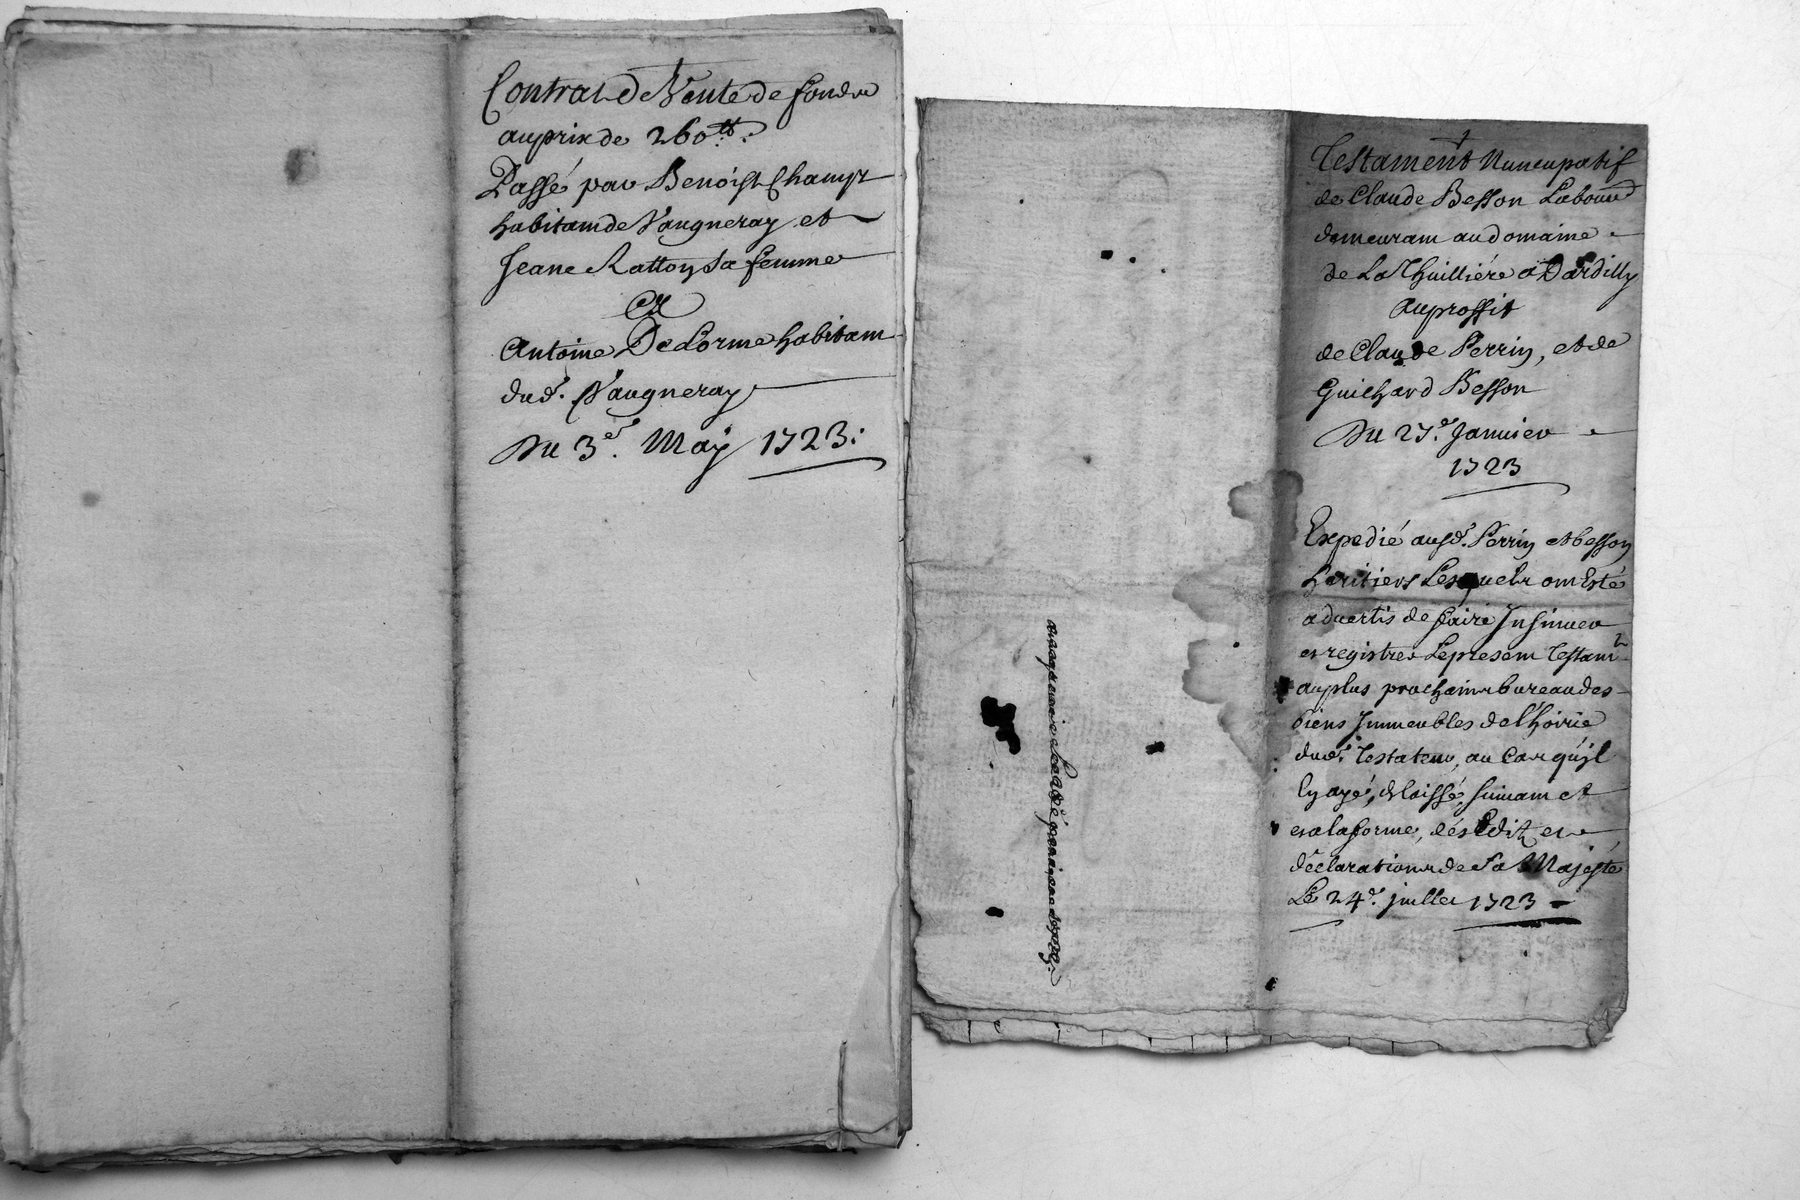 Contrat De Vente de fonds
au prix de 260tt.
Passé par Benoist Champt
habitam de Vaugneray et
Jeane Rattony sa femme
A
Antoine Delorme habitam
dud. Vaugneray
Du 3e. May 1723.
Testament Nuncupatif
de Claude Besson Labour
demeuram au domaine
de La Thuilliére a Dardilly
au proffit
de Claude Perrin, et de
Guichard Besson
Du 27e. Janvier
1723
Expedié ausd. Perrin et besson
heritiers Lesquels om Esté
advertis de faire Insinuer
et registrer Le presem Testamt
au plus prochain bureau des
biens Immeubles de l'hoirie
dud. Testateur, au Cas qu'jl
En aye, delaissé, suivam et
en la forme, dés Edits et
déclarations de Sa Majesté
Le 24e. juillet 1723